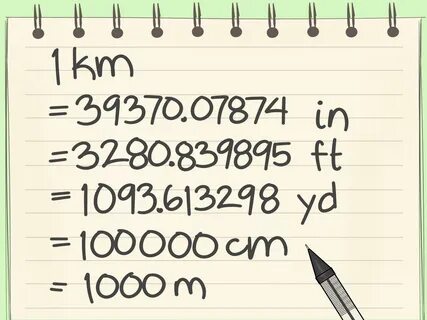 1 km
= 39370.07874 in
= 3280.839895 ft
= 1093.613298 yd
= 100000 cm
= 1000 m